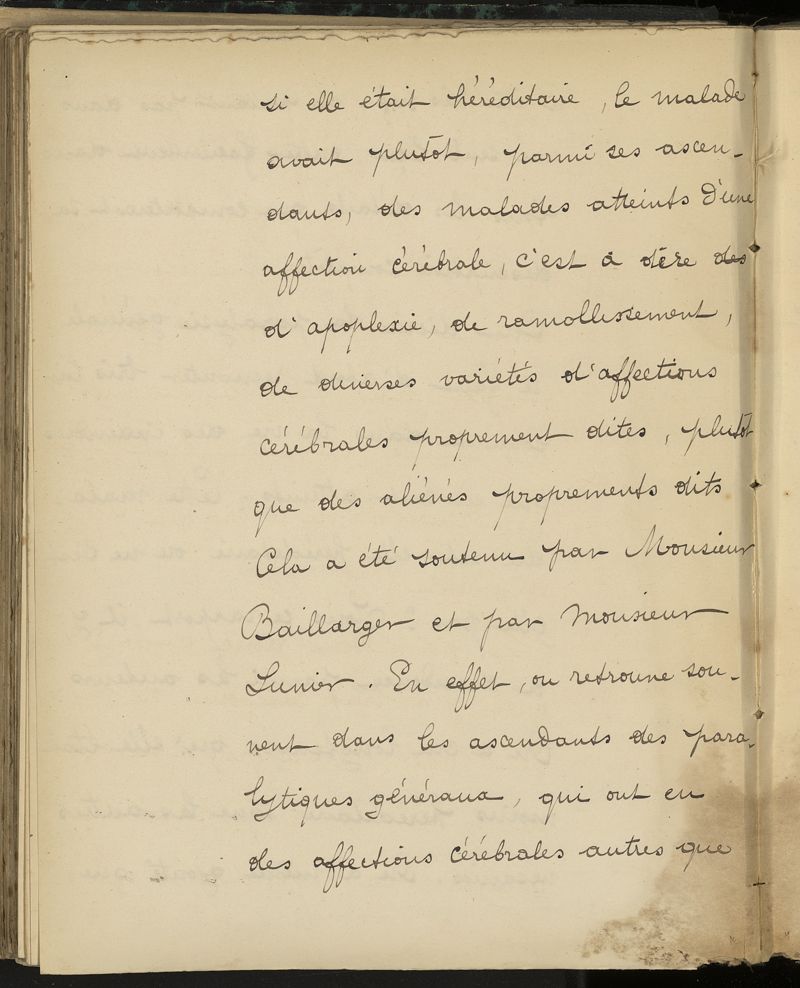 si elle était héréditaire, le malade
avait plutôt, parmi ses ascen-
dants, des malades atteints d'une
affection cérébrale, c'est à dire des
d'apoplexie, de ramollissement,
de diverses variétés d'affections
cérébrales proprement dites, plutôt
que des aliénés proprements dits
Cela a été soutenu par Monsieur
Baillarger et par Monsieur
Lunier. En effet, on retrouve sou-
vent dans les ascendants des para-
lytiques généraux, qui ont eu
des affections cérébrales autres que